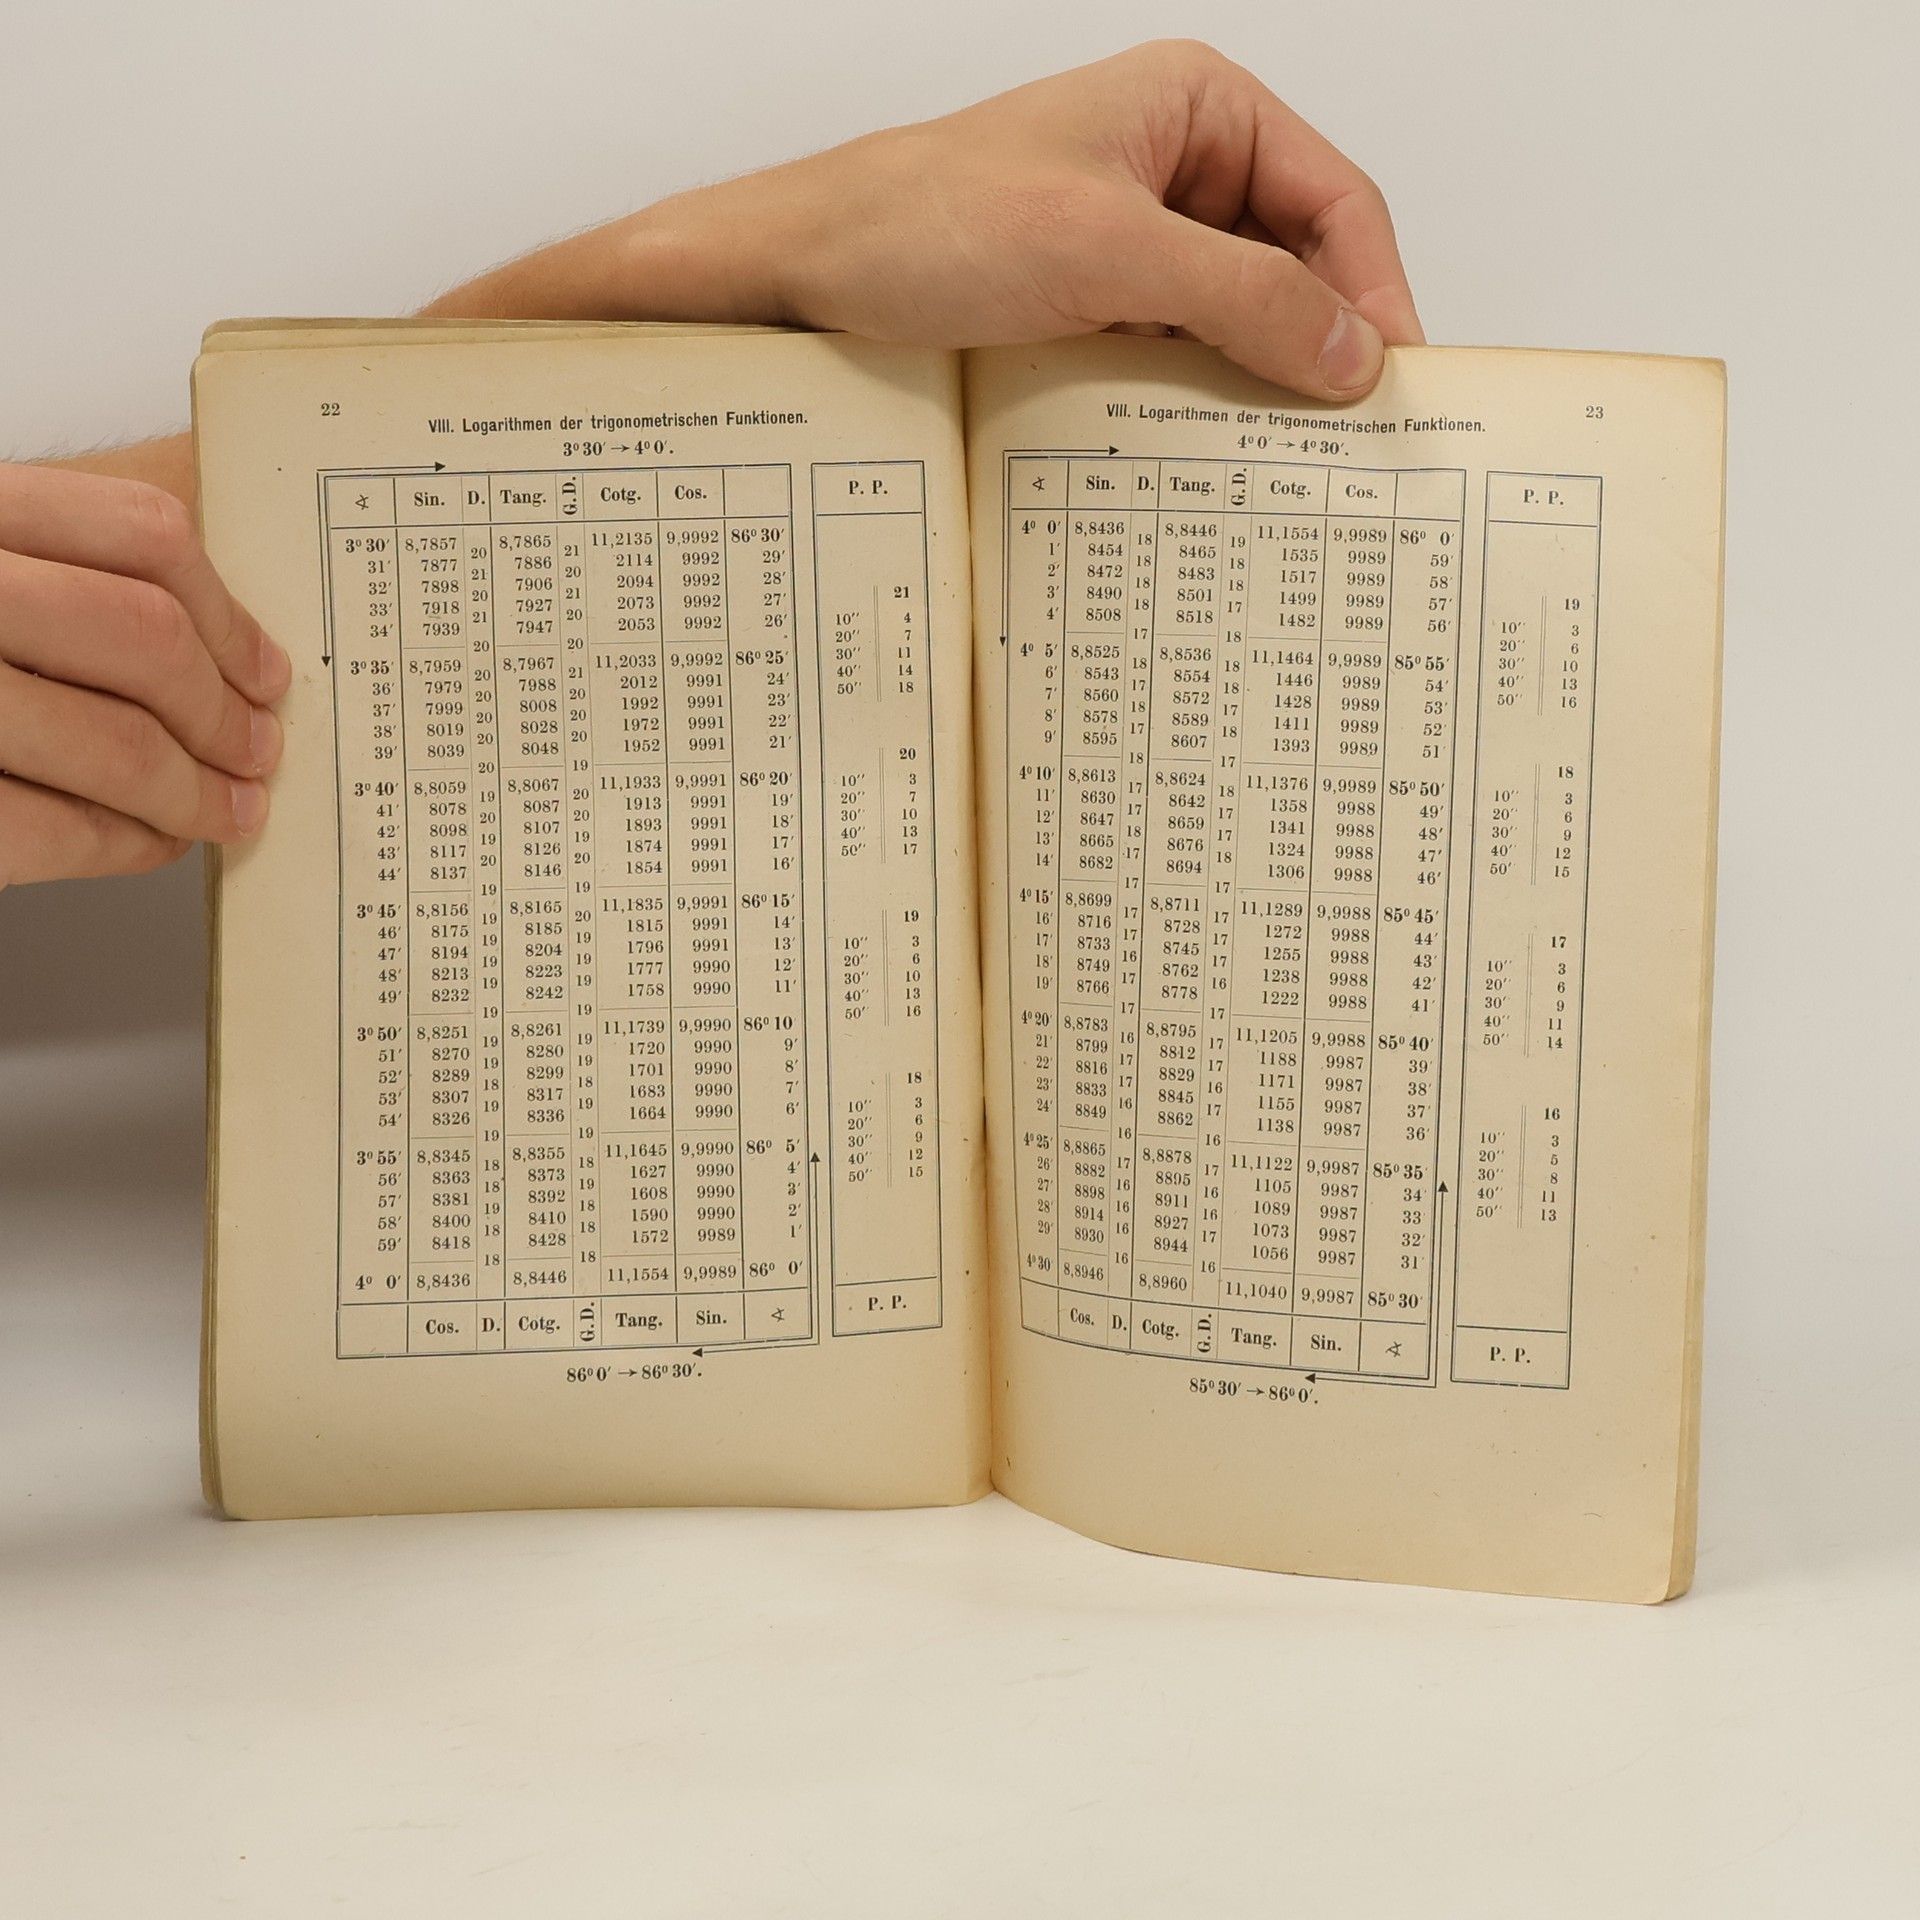 22
VIII. Logarithmen der trigonometrischen Funktionen.
3° 30′ → 4° 0′.
∢ Sin. D. Tang. G.D. Cotg. Cos. P. P.
3° 30′ 8,7857 20 8,7865 21 11,2135 9,9992 86° 30′
31′ 7877 21 7886 20 2114 9992 29′
32′ 7898 20 7906 21 2094 9992 28′
33′ 7918 21 7927 20 2073 9992 27′
34′ 7939 20 7947 20 2053 9992 26′
3° 35′ 8,7959 20 8,7967 21 11,2033 9,9992 86° 25′
36′ 7979 20 7988 20 2012 9991 24′
37′ 7999 20 8008 20 1992 9991 23′
38′ 8019 20 8028 20 1972 9991 22′
39′ 8039 20 8048 19 1952 9991 21′
3° 40′ 8,8059 19 8,8067 20 11,1933 9,9991 86° 20′
41′ 8078 20 8087 20 1913 9991 19′
42′ 8098 19 8107 19 1893 9991 18′
43′ 8117 20 8126 20 1874 9991 17′
44′ 8137 19 8146 19 1854 9991 16′
3° 45′ 8,8156 19 8,8165 20 11,1835 9,9991 86° 15′
46′ 8175 19 8185 19 1815 9991 14′
47′ 8194 19 8204 19 1796 9991 13′
48′ 8213 19 8223 19 1777 9990 12′
49′ 8232 19 8242 19 1758 9990 11′
3° 50′ 8,8251 19 8,8261 19 11,1739 9,9990 86° 10′
51′ 8270 19 8280 19 1720 9990 9′
52′ 8289 18 8299 18 1701 9990 8′
53′ 8307 19 8317 19 1683 9990 7′
54′ 8326 19 8336 19 1664 9990 6′
3° 55′ 8,8345 18 8,8355 18 11,1645 9,9990 86° 5′
56′ 8363 18 8373 19 1627 9990 4′
57′ 8381 19 8392 18 1608 9990 3′
58′ 8400 18 8410 18 1590 9990 2′
59′ 8418 18 8428 18 1572 9989 1′
4° 0′ 8,8436 8,8446 11,1554 9,9989 86° 0′
Cos. D. Cotg. G.D. Tang. Sin. ∢ P. P.
86° 0′ → 86° 30′.
21
10″ 4
20″ 7
30″ 11
40″ 14
50″ 18
20
10″ 3
20″ 7
30″ 10
40″ 13
50″ 17
19
10″ 3
20″ 6
30″ 10
40″ 13
50″ 16
18
10″ 3
20″ 6
30″ 9
40″ 12
50″ 15
23
VIII. Logarithmen der trigonometrischen Funktionen.
4° 0′ → 4° 30′.
∢ Sin. D. Tang. G.D. Cotg. Cos. P. P.
4° 0′ 8,8436 18 8,8446 19 11,1554 9,9989 86° 0′
1′ 8454 18 8465 18 1535 9989 59′
2′ 8472 18 8483 18 1517 9989 58′
3′ 8490 18 8501 17 1499 9989 57′
4′ 8508 17 8518 18 1482 9989 56′
4° 5′ 8,8525 18 8,8536 18 11,1464 9,9989 85° 55′
6′ 8543 17 8554 18 1446 9989 54′
7′ 8560 18 8572 17 1428 9989 53′
8′ 8578 17 8589 18 1411 9989 52′
9′ 8595 18 8607 17 1393 9989 51′
4° 10′ 8,8613 17 8,8624 18 11,1376 9,9989 85° 50′
11′ 8630 17 8642 17 1358 9988 49′
12′ 8647 18 8659 17 1341 9988 48′
13′ 8665 17 8676 18 1324 9988 47′
14′ 8682 17 8694 17 1306 9988 46′
4° 15′ 8,8699 17 8,8711 17 11,1289 9,9988 85° 45′
16′ 8716 17 8728 17 1272 9988 44′
17′ 8733 16 8745 17 1255 9988 43′
18′ 8749 17 8762 16 1238 9988 42′
19′ 8766 17 8778 17 1222 9988 41′
4° 20′ 8,8783 16 8,8795 17 11,1205 9,9988 85° 40′
21′ 8799 17 8812 17 1188 9987 39′
22′ 8816 17 8829 16 1171 9987 38′
23′ 8833 16 8845 17 1155 9987 37′
24′ 8849 16 8862 16 1138 9987 36′
4° 25′ 8,8865 17 8,8878 17 11,1122 9,9987 85° 35′
26′ 8882 16 8895 16 1105 9987 34′
27′ 8898 16 8911 16 1089 9987 33′
28′ 8914 16 8927 17 1073 9987 32′
29′ 8930 16 8944 16 1056 9987 31′
4° 30′ 8,8946 8,8960 11,1040 9,9987 85° 30′
Cos. D. Cotg. G.D. Tang. Sin. ∢ P. P.
85° 30′ → 86° 0′.
19
10″ 3
20″ 6
30″ 10
40″ 13
50″ 16
18
10″ 3
20″ 6
30″ 9
40″ 12
50″ 15
17
10″ 3
20″ 6
30″ 9
40″ 11
50″ 14
16
10″ 3
20″ 5
30″ 8
40″ 11
50″ 13